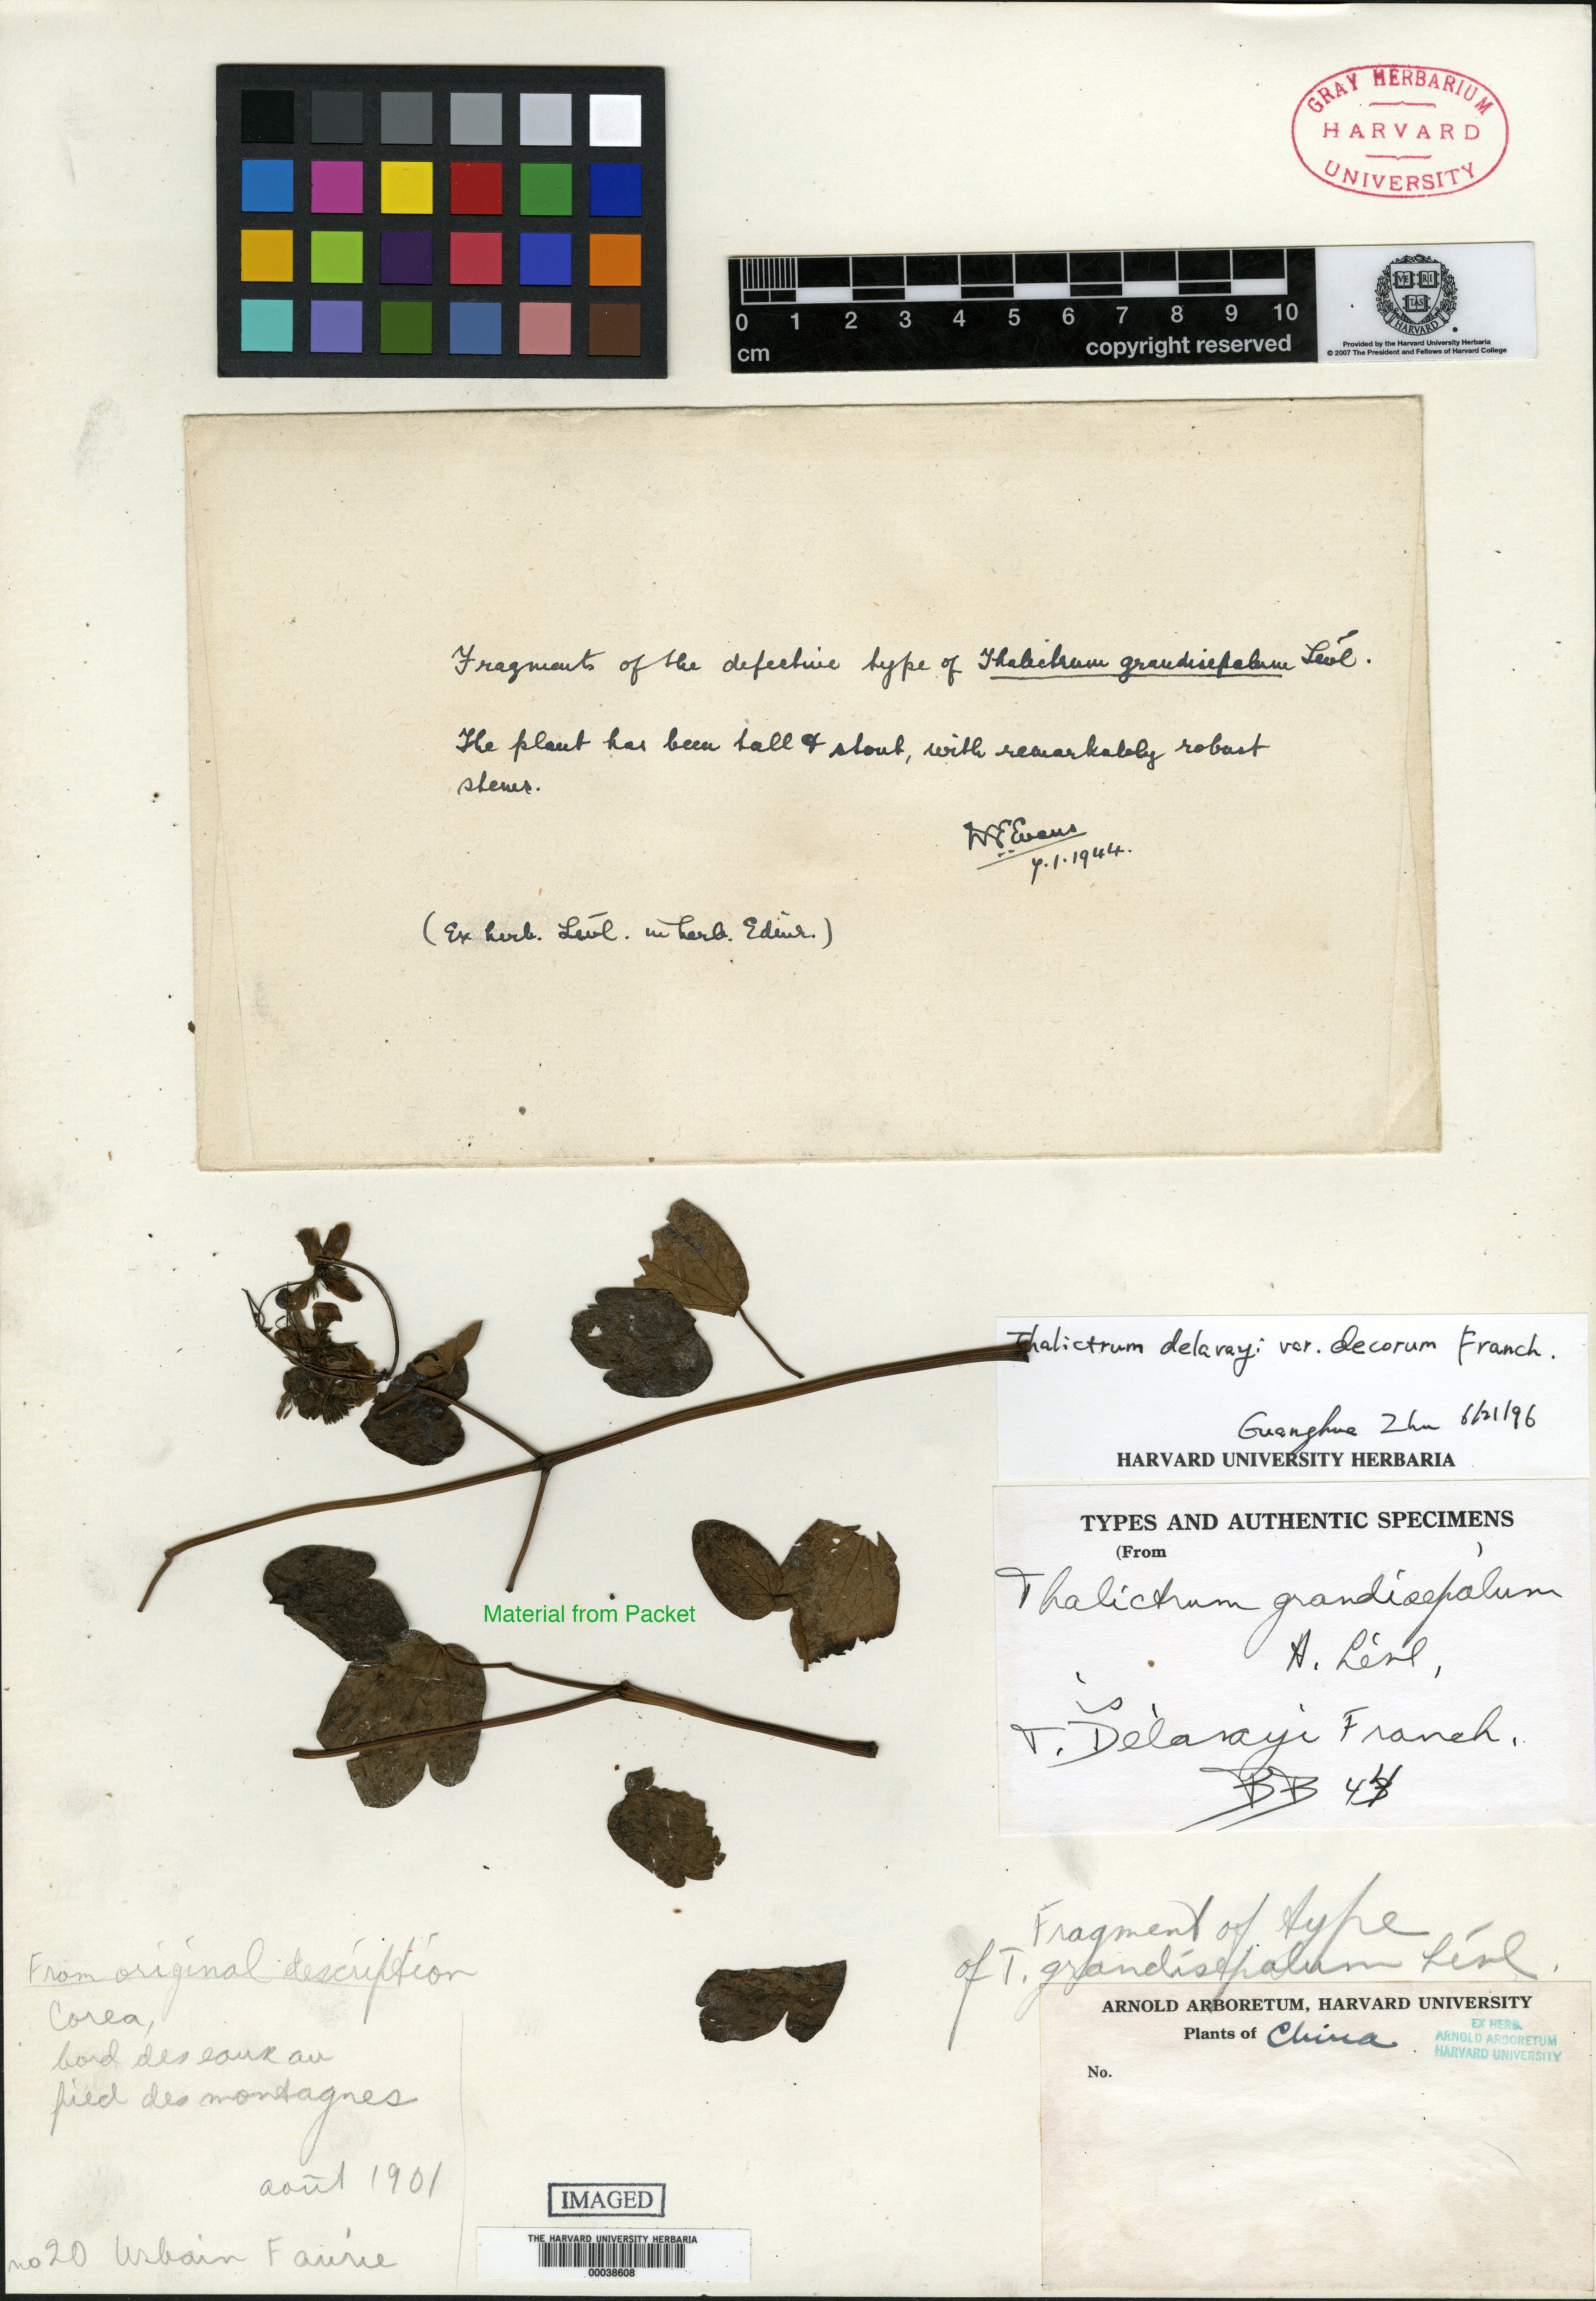 GRAY HERBARIUM
HARVARD
UNIVERSITY
0 1 2 3 4 5 6 7 8 9 10
cm
copyright reserved
VE RI
TAS
HARVARD
Provided by the Harvard University Herbaria
© 2007 The President and Fellows of Harvard College
Fragments of the defective type of Thalictrum grandisepalum Lévl.
The plant has been tall & stout, with remarkably robust
stems.
W E Evans
7.1.1944.
(Ex herb. Lévl. in herb. Edin.)
Thalictrum delavayi var. decorum Franch.
Guanghua Zhu 6/21/96
HARVARD UNIVERSITY HERBARIA
TYPES AND AUTHENTIC SPECIMENS
(From )
Thalictrum grandisepalum
H. Lévl,
is
T. Delavayi Franch.
BB
Material from Packet
Fragment of type
of T. grandisepalum Lévl.
ARNOLD ARBORETUM, HARVARD UNIVERSITY
Plants of China
EX HERB.
ARNOLD ARBORETUM
HARVARD UNIVERSITY
No.
From original description
Corea,
bord des eaux au
pied des montagnes
août 1901
no 20 Urbain Faurie
IMAGED
THE HARVARD UNIVERSITY HERBARIA
00038608